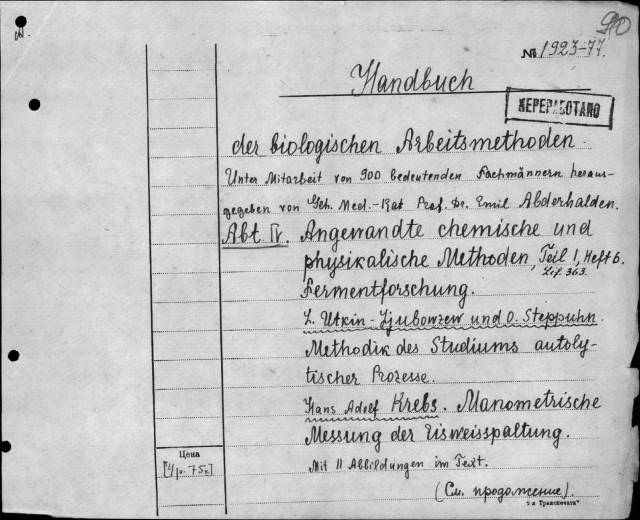 90
№ 1923-77.
Handbuch
ПЕРЕРАБОТАНО
der biologischen Arbeitsmethoden.
Unter Mitarbeit von 900 bedeutenden Fachmännern heraus-
gegeben von Geh. Med.-Rat Prof. Dr. Emil Abderhalden.
Abt. IV. Angewandte chemische und
physikalische Methoden, Teil 1, Heft 6.
Lif. 363.
Fermentforschung.
L. Utkin-Ljubowzew und O. Steppuhn.
Methodik des Studiums autoly-
tischer Prozesse.
Hans Adolf Krebs. Manometrische
Messung der Eisweisspaltung.
Цена
Mit 11 Abbildungen im Text.
(См. продолжение)
"Транспечать"